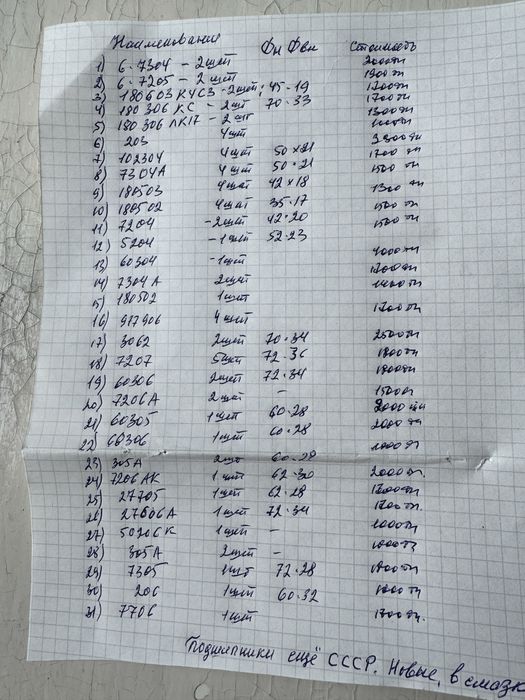 Наименование Фн Фвн Стоимость
1) 6-7304 - 2шт 2000тг
2) 6-7205 - 2шт 1900тг
3) 180603КУС3 - 2шт; 45-19 1700тг
4) 180306КС - 2шт 70-33 1700тг
5) 180306ЛК17 - 2шт 1300тг
6) 203 4шт
7) 102304 4шт 50×21
8) 7304А 4шт 50-21 1700тг
9) 180503 4шт 42×18 1500тг
10) 180502 4шт 35-17 1300тг
11) 7204 - 2шт 42-20 1500тг
12) 5204 - 1шт 52-23 1500тг
13) 60304 - 1шт
14) 7304А 2шт
15) 180502 1шт
16) 917906 4шт 1700тг
17) 3062 2шт 70-34 2500тг
18) 7207 5шт 72-36 1800тг
19) 60306 2шт 72-34
20) 7206А 2шт - 1500тг
21) 60305 1шт 60-28 2000тг
22) 60306 1шт 60-28 2000тг
23) 305А 2шт 60-28
24) 7206АК 1шт 62-30 2000тг.
25) 27705 1шт 62-28 1700тг
26) 27606А 1шт 72-34 1700тг.
27) 50206К 1шт -
28) 305А 2шт -
29) 7305 1шт 72-28
30) 206 1шт 60-32
31) 7706 1шт 1700тг.
Подшипники ещё СССР. Новые, в смазк